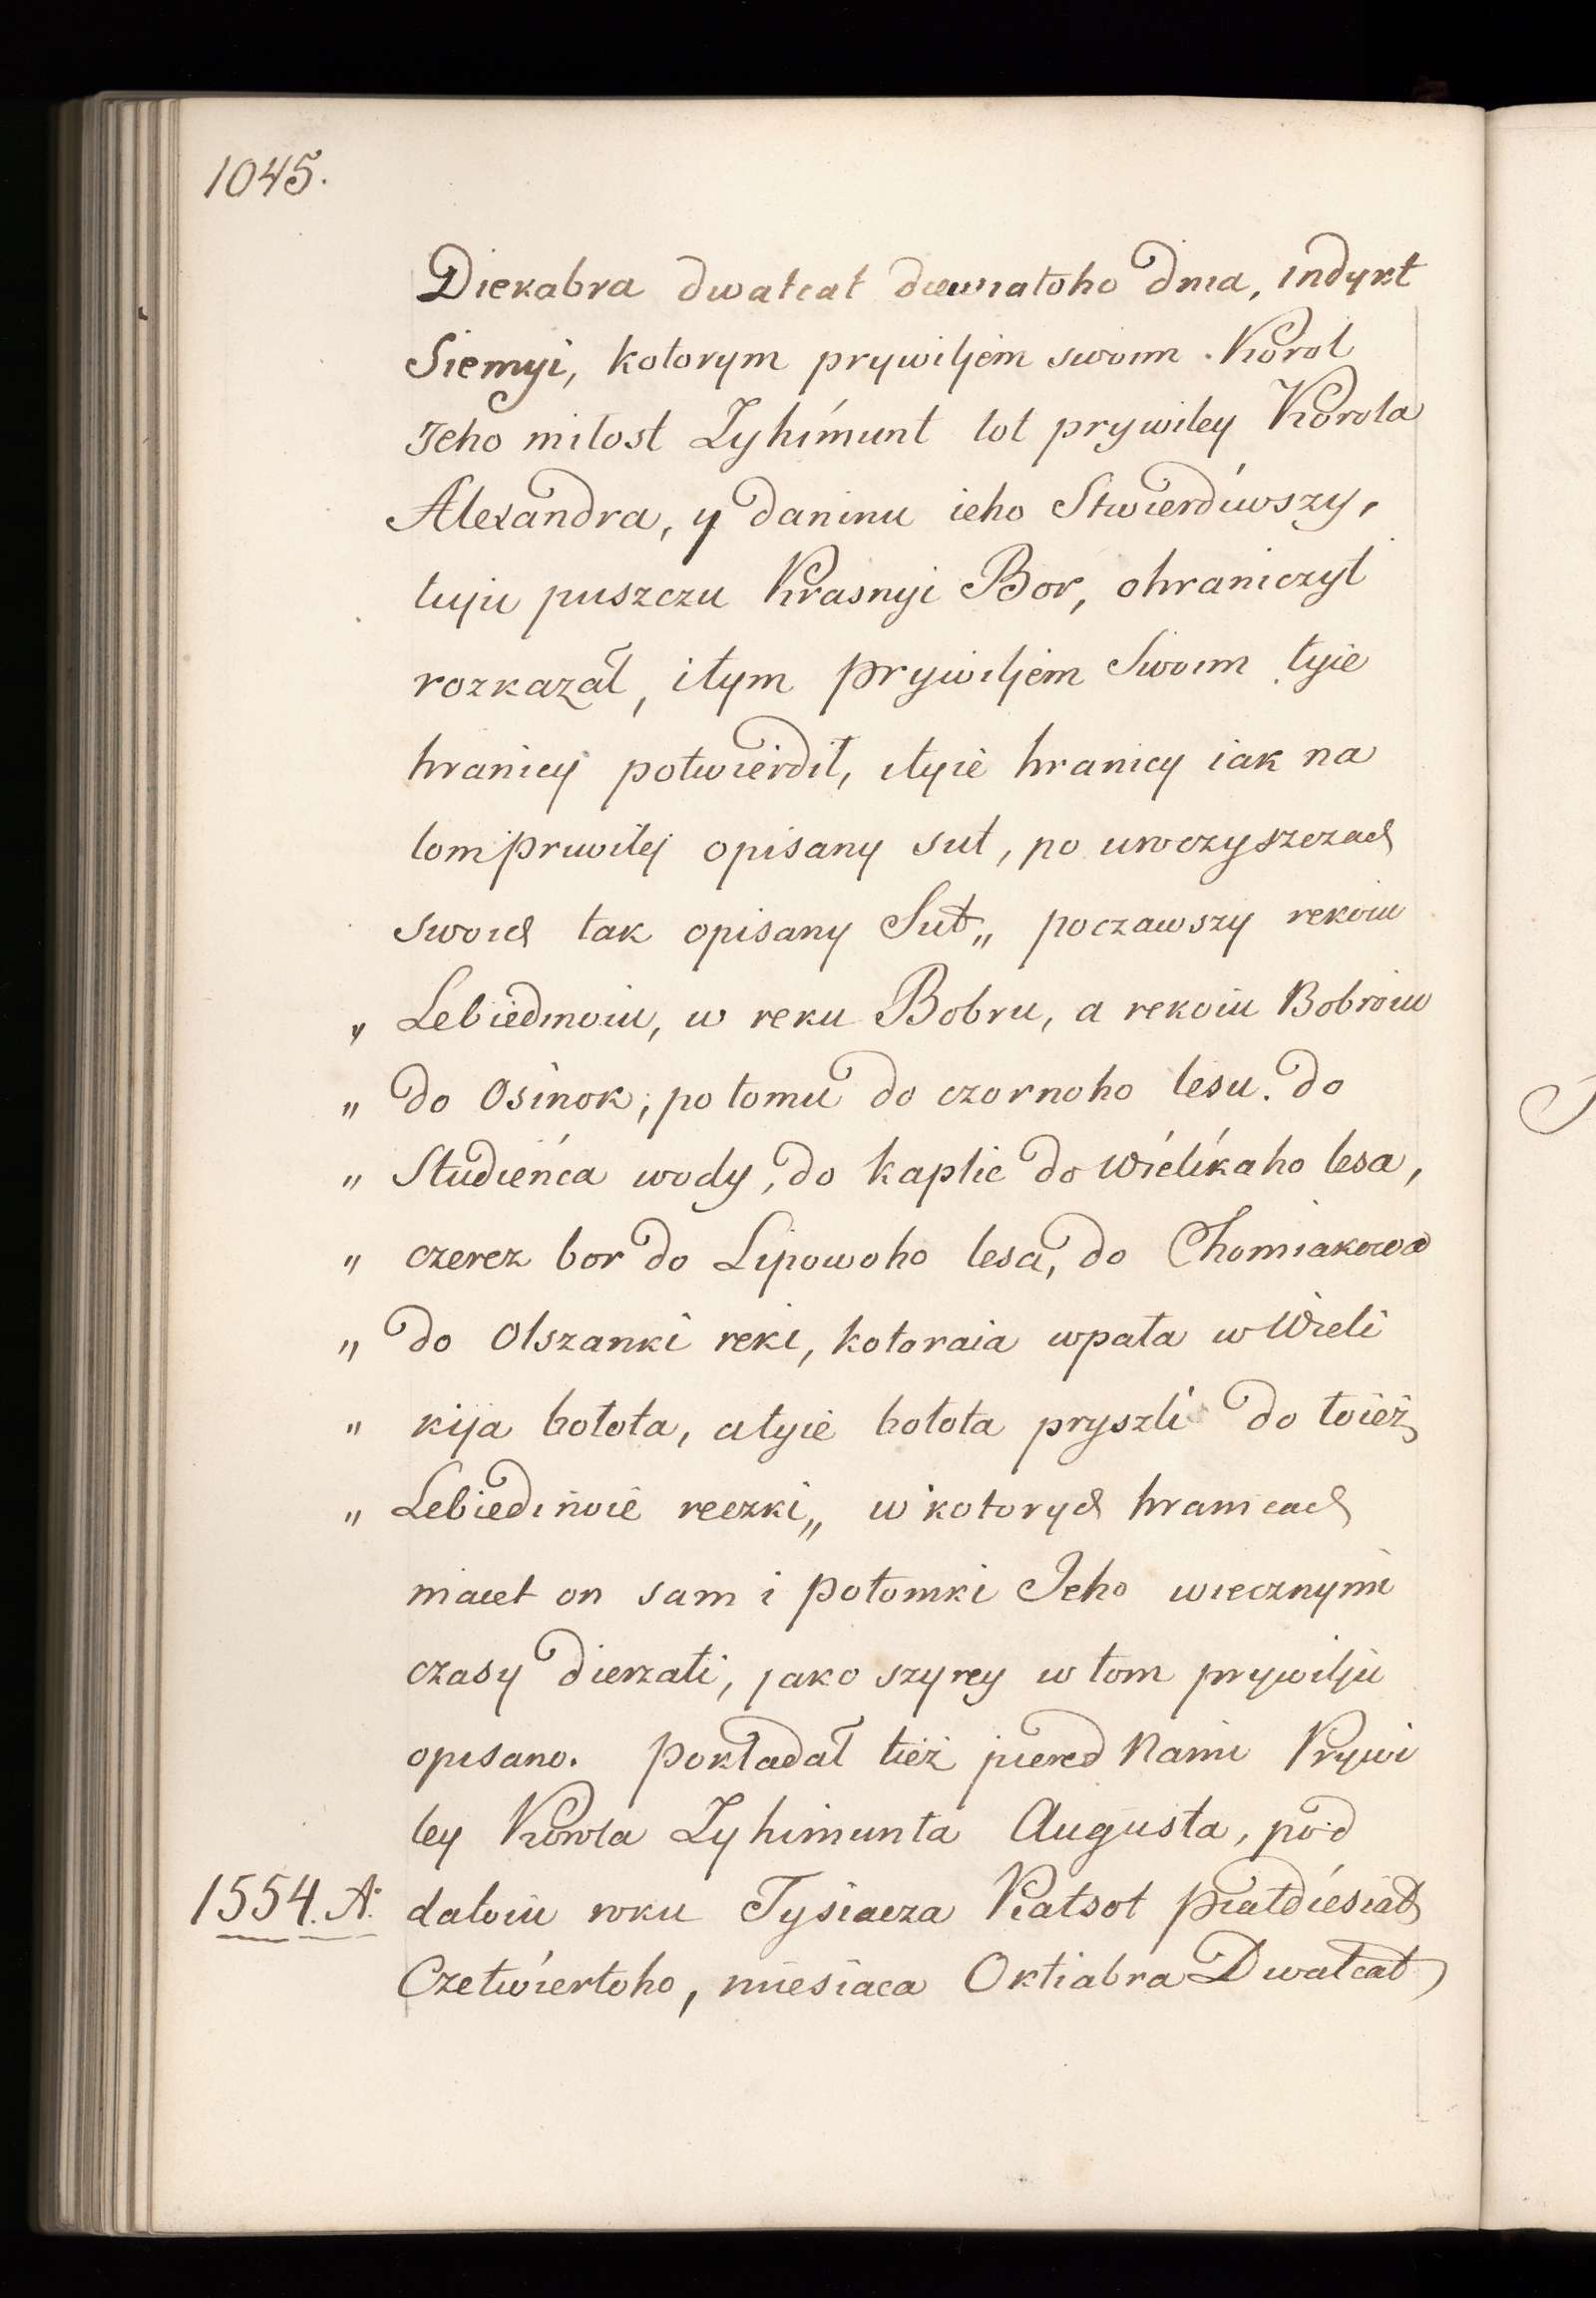 1045.
Diekabra dwatcat dewiatoho dnia, indykt
Siemyi, kotorym prywiljem swoim Korol
Jeho miłost Zyhimunt tot prywiley Korola
Alexandra, y daninu ieho Stwierdiwszy,
tuju puszczu Krasnyi Bor, ohraniczyt
rozkazał, itym prywiljem Swoim tyie
hranicy potwierdił, ityie hranicy iak na
tom prwilej opisany sut, po uroczyszczach
swoich tak opisany Sut„ poczawszy rekoiu
„ Lebiedinoiu, w reku Bobru, a rekoiu Bobroiu
„ do Osinok, po tomu do czornoho lesu. do
„ Studieńca wody, do kaplic do Wielikaho lesa,
„ czerez bor do Lipowoho lesa, do Chomiakowa
„ do Olszanki reki, kotoraia wpała w Wieli
„ kija bołota, atyie bołota pryszli do toież
„ Lebiedinoie reczki„ w kotorych hranicach
maiet on sam i potomki Jeho wiecznymi
czasy dierzati, jako szyrey w tom prywilju
opisano. Pokładał tież piered Nami Prywi
ley Korola Zyhimunta Augusta, pod
1554. A. datoiu roku Tysiacza Piatsot piatdiesiat
Czetwiertoho, miesiaca Oktiabra Dwatcat